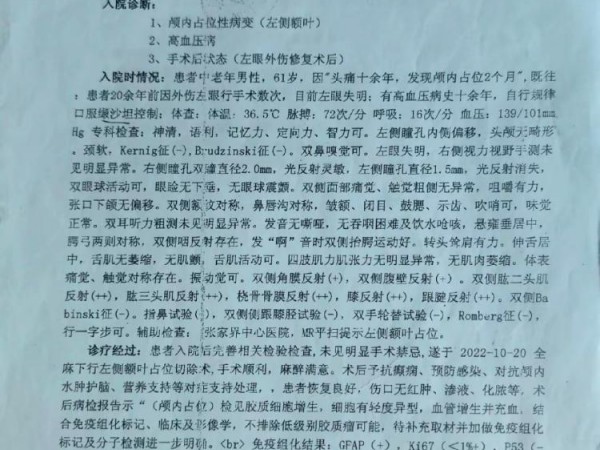 入院诊断:
1、颅内占位性病变(左侧额叶)
2、高血压病
3、手术后状态(左眼外伤修复术后)
入院时情况: 患者中老年男性, 61岁, 因"头痛十余年, 发现颅内占位2个月", 既往
, 患者20余年前因外伤左眼行手术数次, 目前左眼失明; 有高血压病史十余年, 自行规律
口服缬沙坦控制; 体查: 体温: 36.5℃ 脉搏: 72次/分 呼吸: 16次/分 血压: 139/101mm
Hg 专科检查: 神清, 语利, 记忆力、定向力、智力可。左侧瞳孔内侧偏移, 头颅无畸形
, 颈软, Kernig征(-), Brudzinski征(-)。双鼻嗅觉可。左眼失明, 右侧视力视野手测未
见明显异常。右侧瞳孔直径2.0mm, 光反射灵敏, 左侧瞳孔直径1.5mm, 光反射消失,
双眼球活动可, 眼睑无下垂, 无眼球震颤。双侧面部痛觉、触觉粗侧无异常, 咀嚼有力,
张口下颌无偏移。双侧额纹对称, 鼻唇沟对称, 皱额、闭目、鼓腮、示齿、吹哨可, 味觉
正常。双耳听力粗测未见明显异常。发音无嘶哑, 无吞咽困难及饮水呛咳, 悬雍垂居中,
腭弓两则对称, 双侧咽反射存在, 发"啊"音时双侧抬腭运动好。转头耸肩有力。伸舌居
中, 舌肌无萎缩, 无肌颤, 舌肌活动可。四肢肌力肌张力无明显异常, 无肌肉萎缩。体表
痛觉、触觉对称存在。振动觉可。双侧角膜反射(+), 双侧腹壁反射(+)。双侧肱二头肌
反射(++), 肱三头肌反射(++), 桡骨骨膜反射(++), 膝反射(++), 跟腱反射(++)。双侧Ba
binski征(-)。指鼻试验(-), 双侧侧跟膝胫试验(-), 双手轮替试验(-), Romberg征(-),
行一字步可。辅助检查: 张家界中心医院, MR平扫提示左侧额叶占位。
诊疗经过: 患者入院后完善相关检验检查, 未见明显手术禁忌, 遂于 2022-10-20 全
麻下行左侧额叶占位切除术, 手术顺利, 麻醉满意。术后予抗癫痫、预防感染、对抗颅内
水肿护脑、营养支持等对症支持处理, , 患者恢复良好, 伤口无红肿、渗液、化脓等。术
后病检报告示"(颅内占位)检见胶质细胞增生, 细胞有轻度异型, 血管增生并充血, 结
合免疫组化标记、临床及影像学, 不排除低级别胶质瘤可能, 待补充取材并加做免疫组化
标记及分子检测进一步明确。<br> 免疫组化结果: GFAP(+), Ki67(≤1%+), P53(-